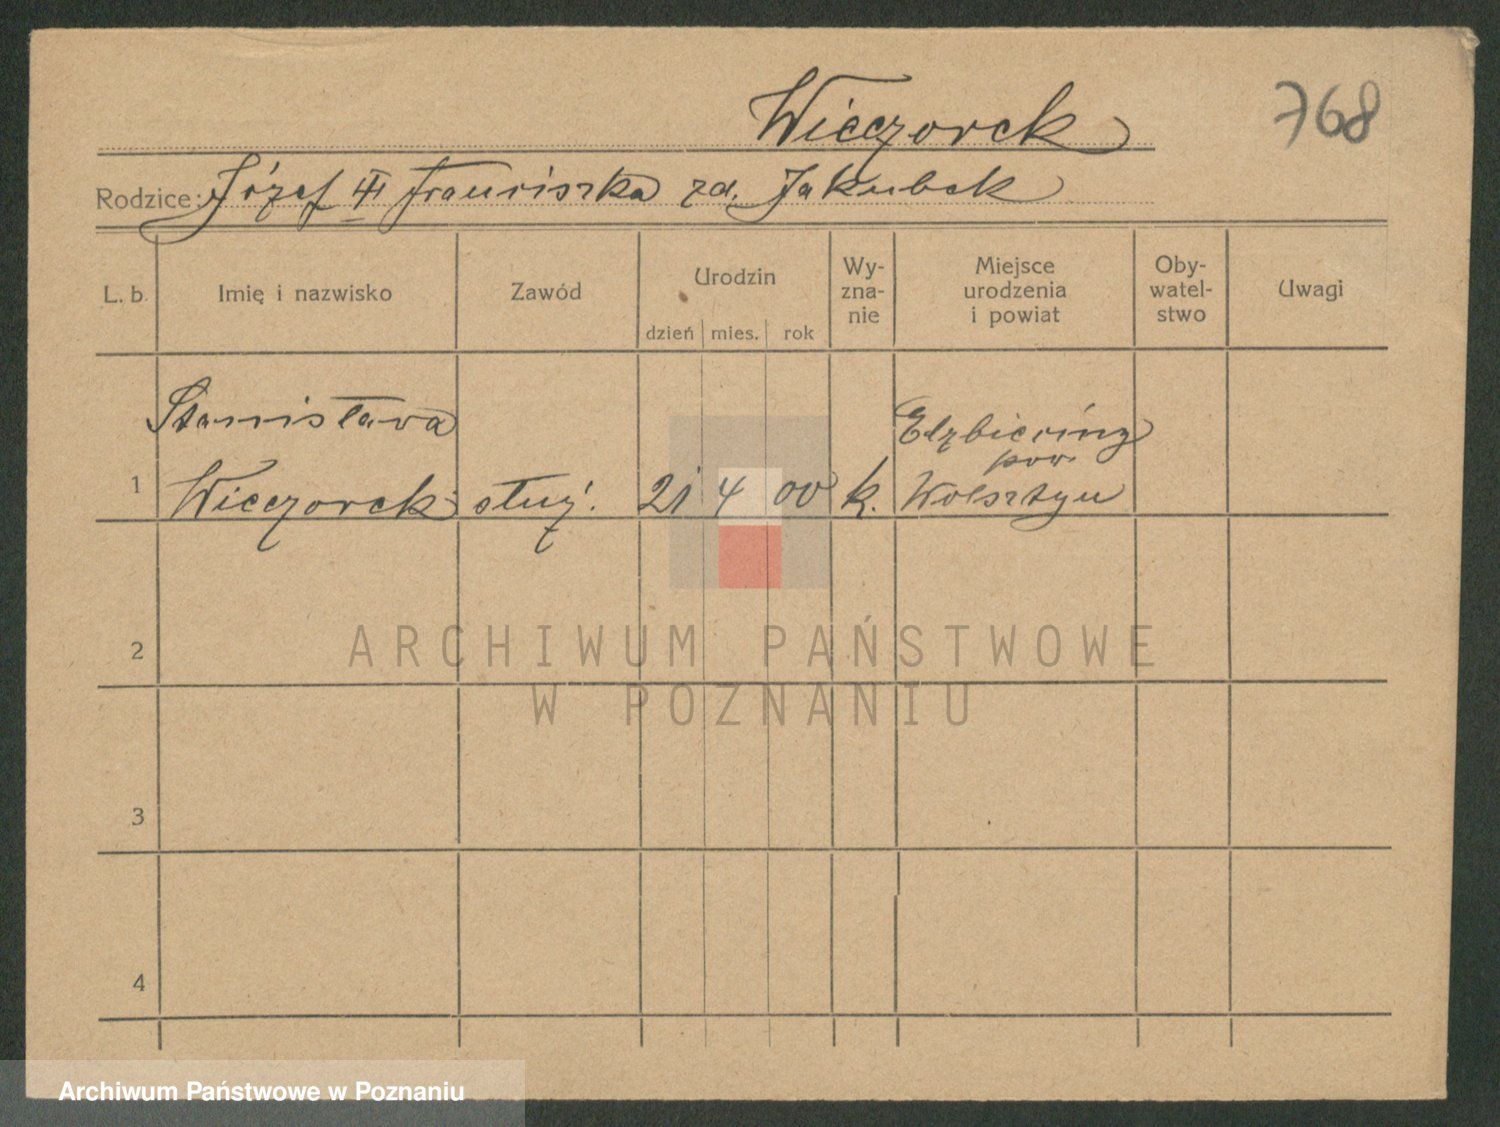 Wieczorek
768
Rodzice: Józef Franciszka zd. Jakubek
L. b.
Imię i nazwisko
Zawód
Urodzin
dzień
mies.
rok
Wy-
zna-
nie
Miejsce
urodzenia
i powiat
Oby-
watel-
stwo
Uwagi
1
Stanisława
Wieczorek
służ.
21
4
00
k.
pow.
Wolsztyn
2
3
4
ARCHIWUM PAŃSTWOWE
W POZNANIU
Archiwum Państwowe w Poznaniu